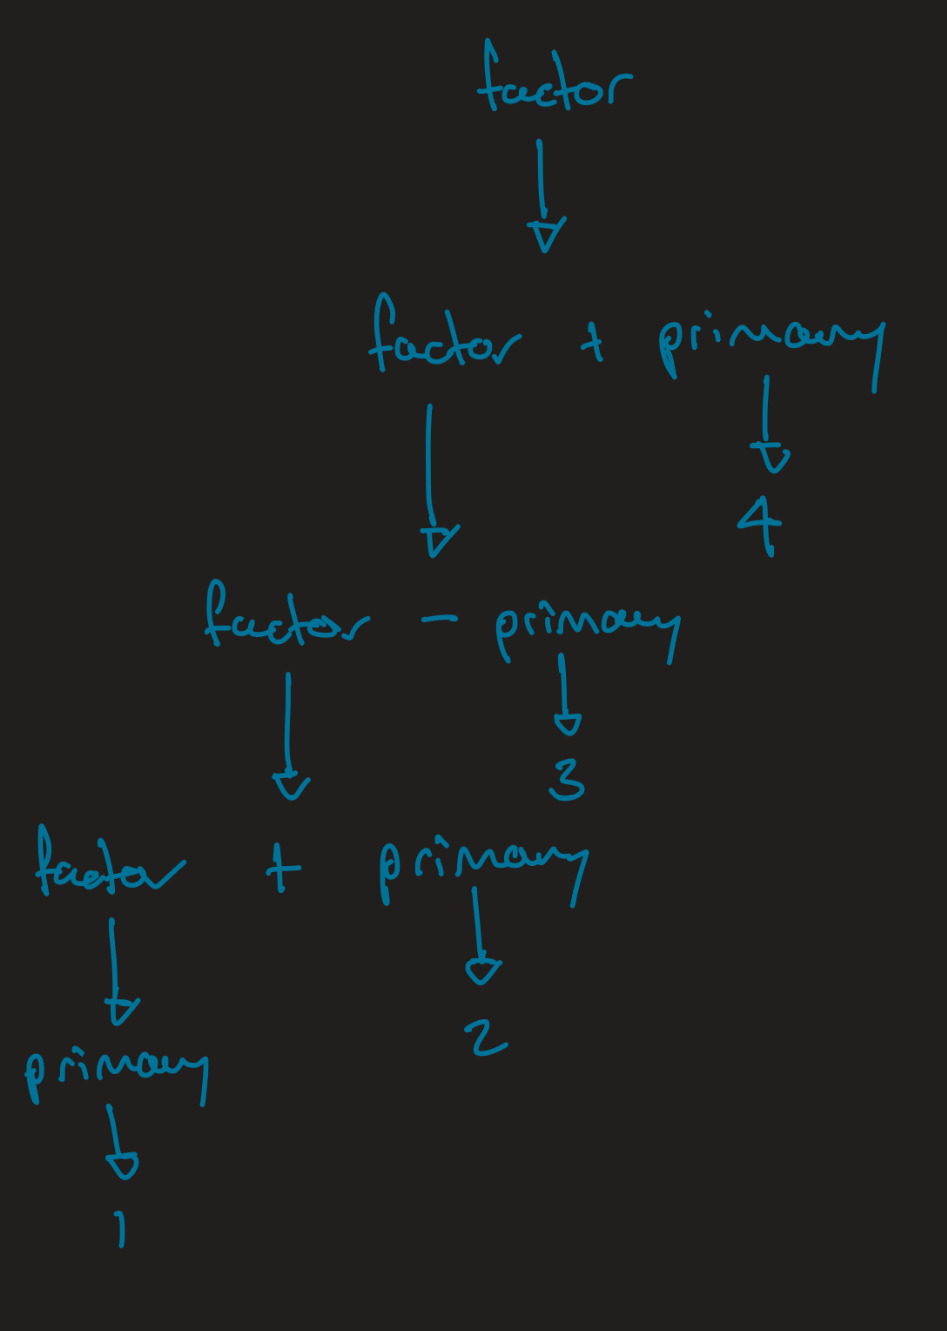 factor
factor + primary
4
factor - primary
3
factor + primary
2
primary
1